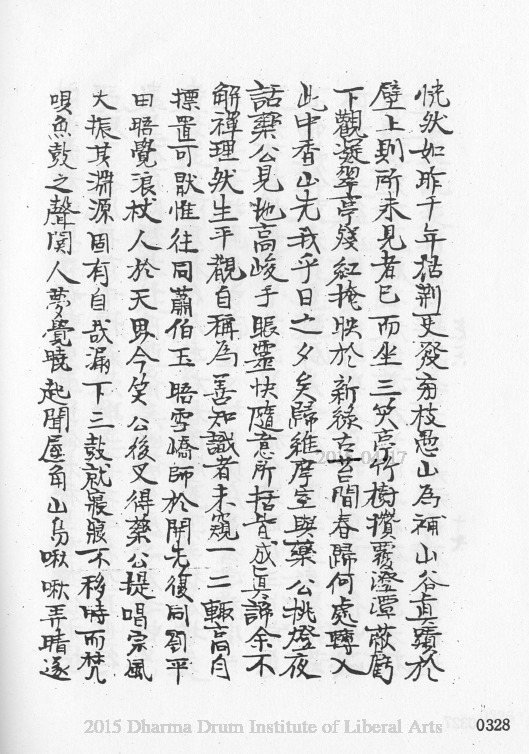 恍然如昨千年枯荊更發旁枝愚山為補山谷真蹟於
壁上則所未見者已而坐三笑亭竹樹攢覆澄潭蔽虧
下觀凝翠亭殘紅掩映於新綠古苔間春歸何處轉入
此中香山先我乎日之夕矣歸維摩室與藥公挑燈夜
話藥公見地高峻手眼靈快隨意所拈皆成真諦余不
解禪理然生平觀自稱為善知識者未窺一二輒高自
摽置可厭惟往同蕭伯玉晤雪嶠師於開先後同劉平
田晤覺浪杖人於天界今笑公後又得藥公提唱宗風
大振其淵源固有自哉漏下三鼓就寢寢不移時而梵
唄魚鼓之聲閙人夢覺曉起聞屋角山鳥啾啾弄晴遂
2015-04-17
2015 Dharma Drum Institute of Liberal Arts
0328